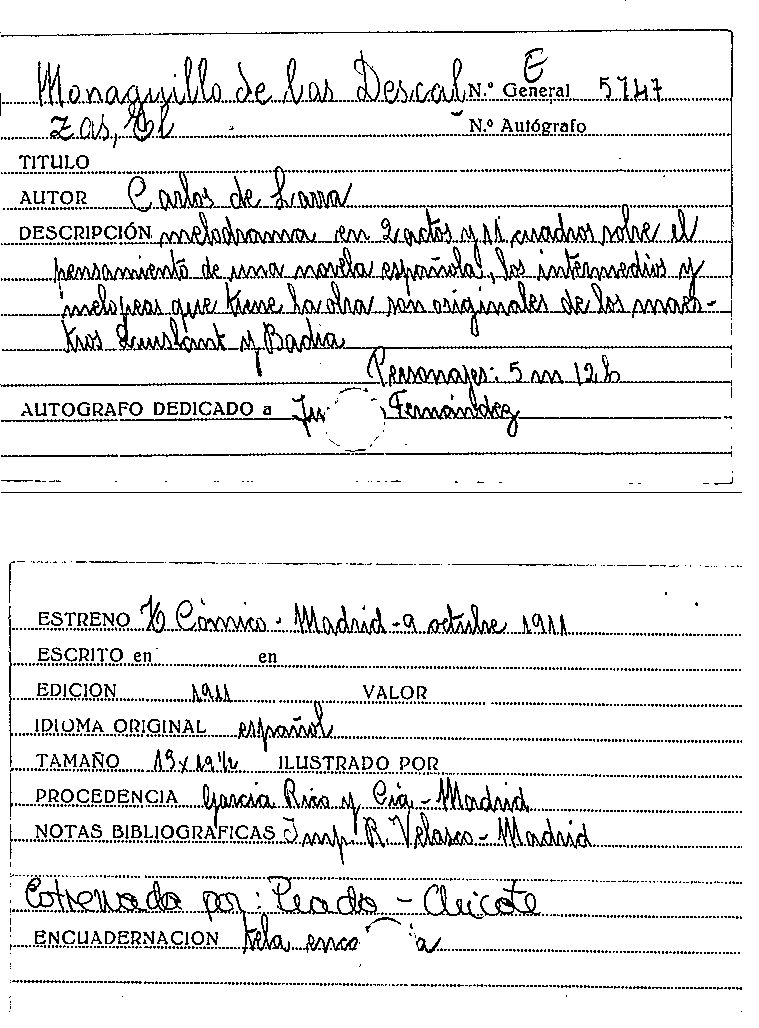 Monaguillo de las Descal N.º General E 5747
zas, El N.º Autógrafo
TITULO
AUTOR Carlos de Larra
DESCRIPCIÓN melodrama en 2 actos y 11 cuadros sobre el
pensamiento de una novela española, los intermedios y
melopeas que tiene la obra son originales de los maes-
tros Quislant y Badia
Personajes: 5 m 12 h
AUTOGRAFO DEDICADO a Fernández
ESTRENO Cómico - Madrid - 9 octubre 1911
ESCRITO en en
EDICION 1911 VALOR
IDIOMA ORIGINAL español
TAMAÑO 13 x 19 1/2 ILUSTRADO POR
PROCEDENCIA Garcia Rico y Cia - Madrid
NOTAS BIBLIOGRAFICAS Imp. R. Velasco - Madrid
Estrenada por: Prado - Chicote
ENCUADERNACION tela